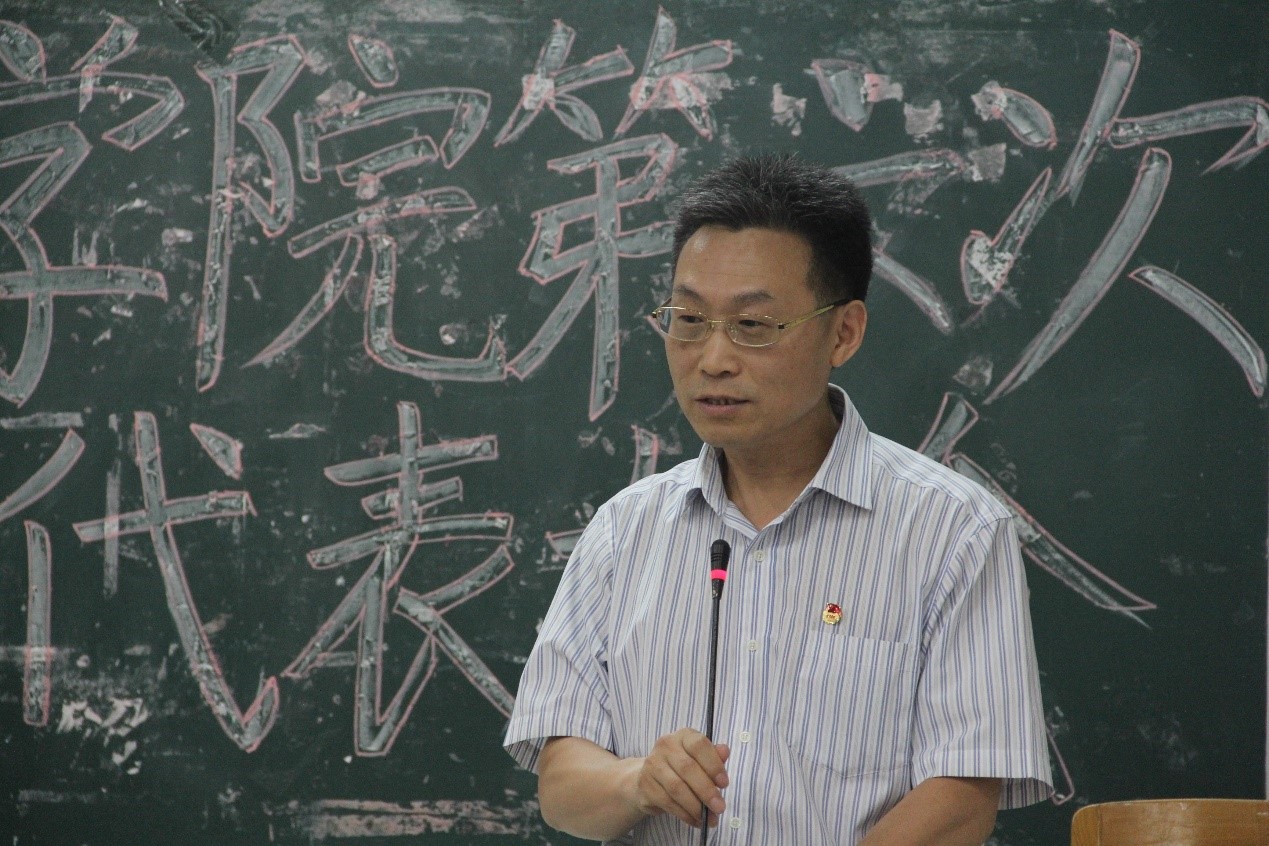 学院第六次
代表